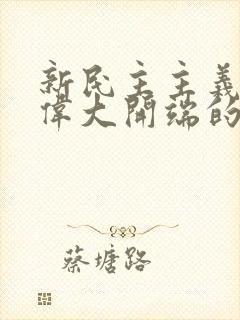 新民主主義
偉大開端的
蔡塘路